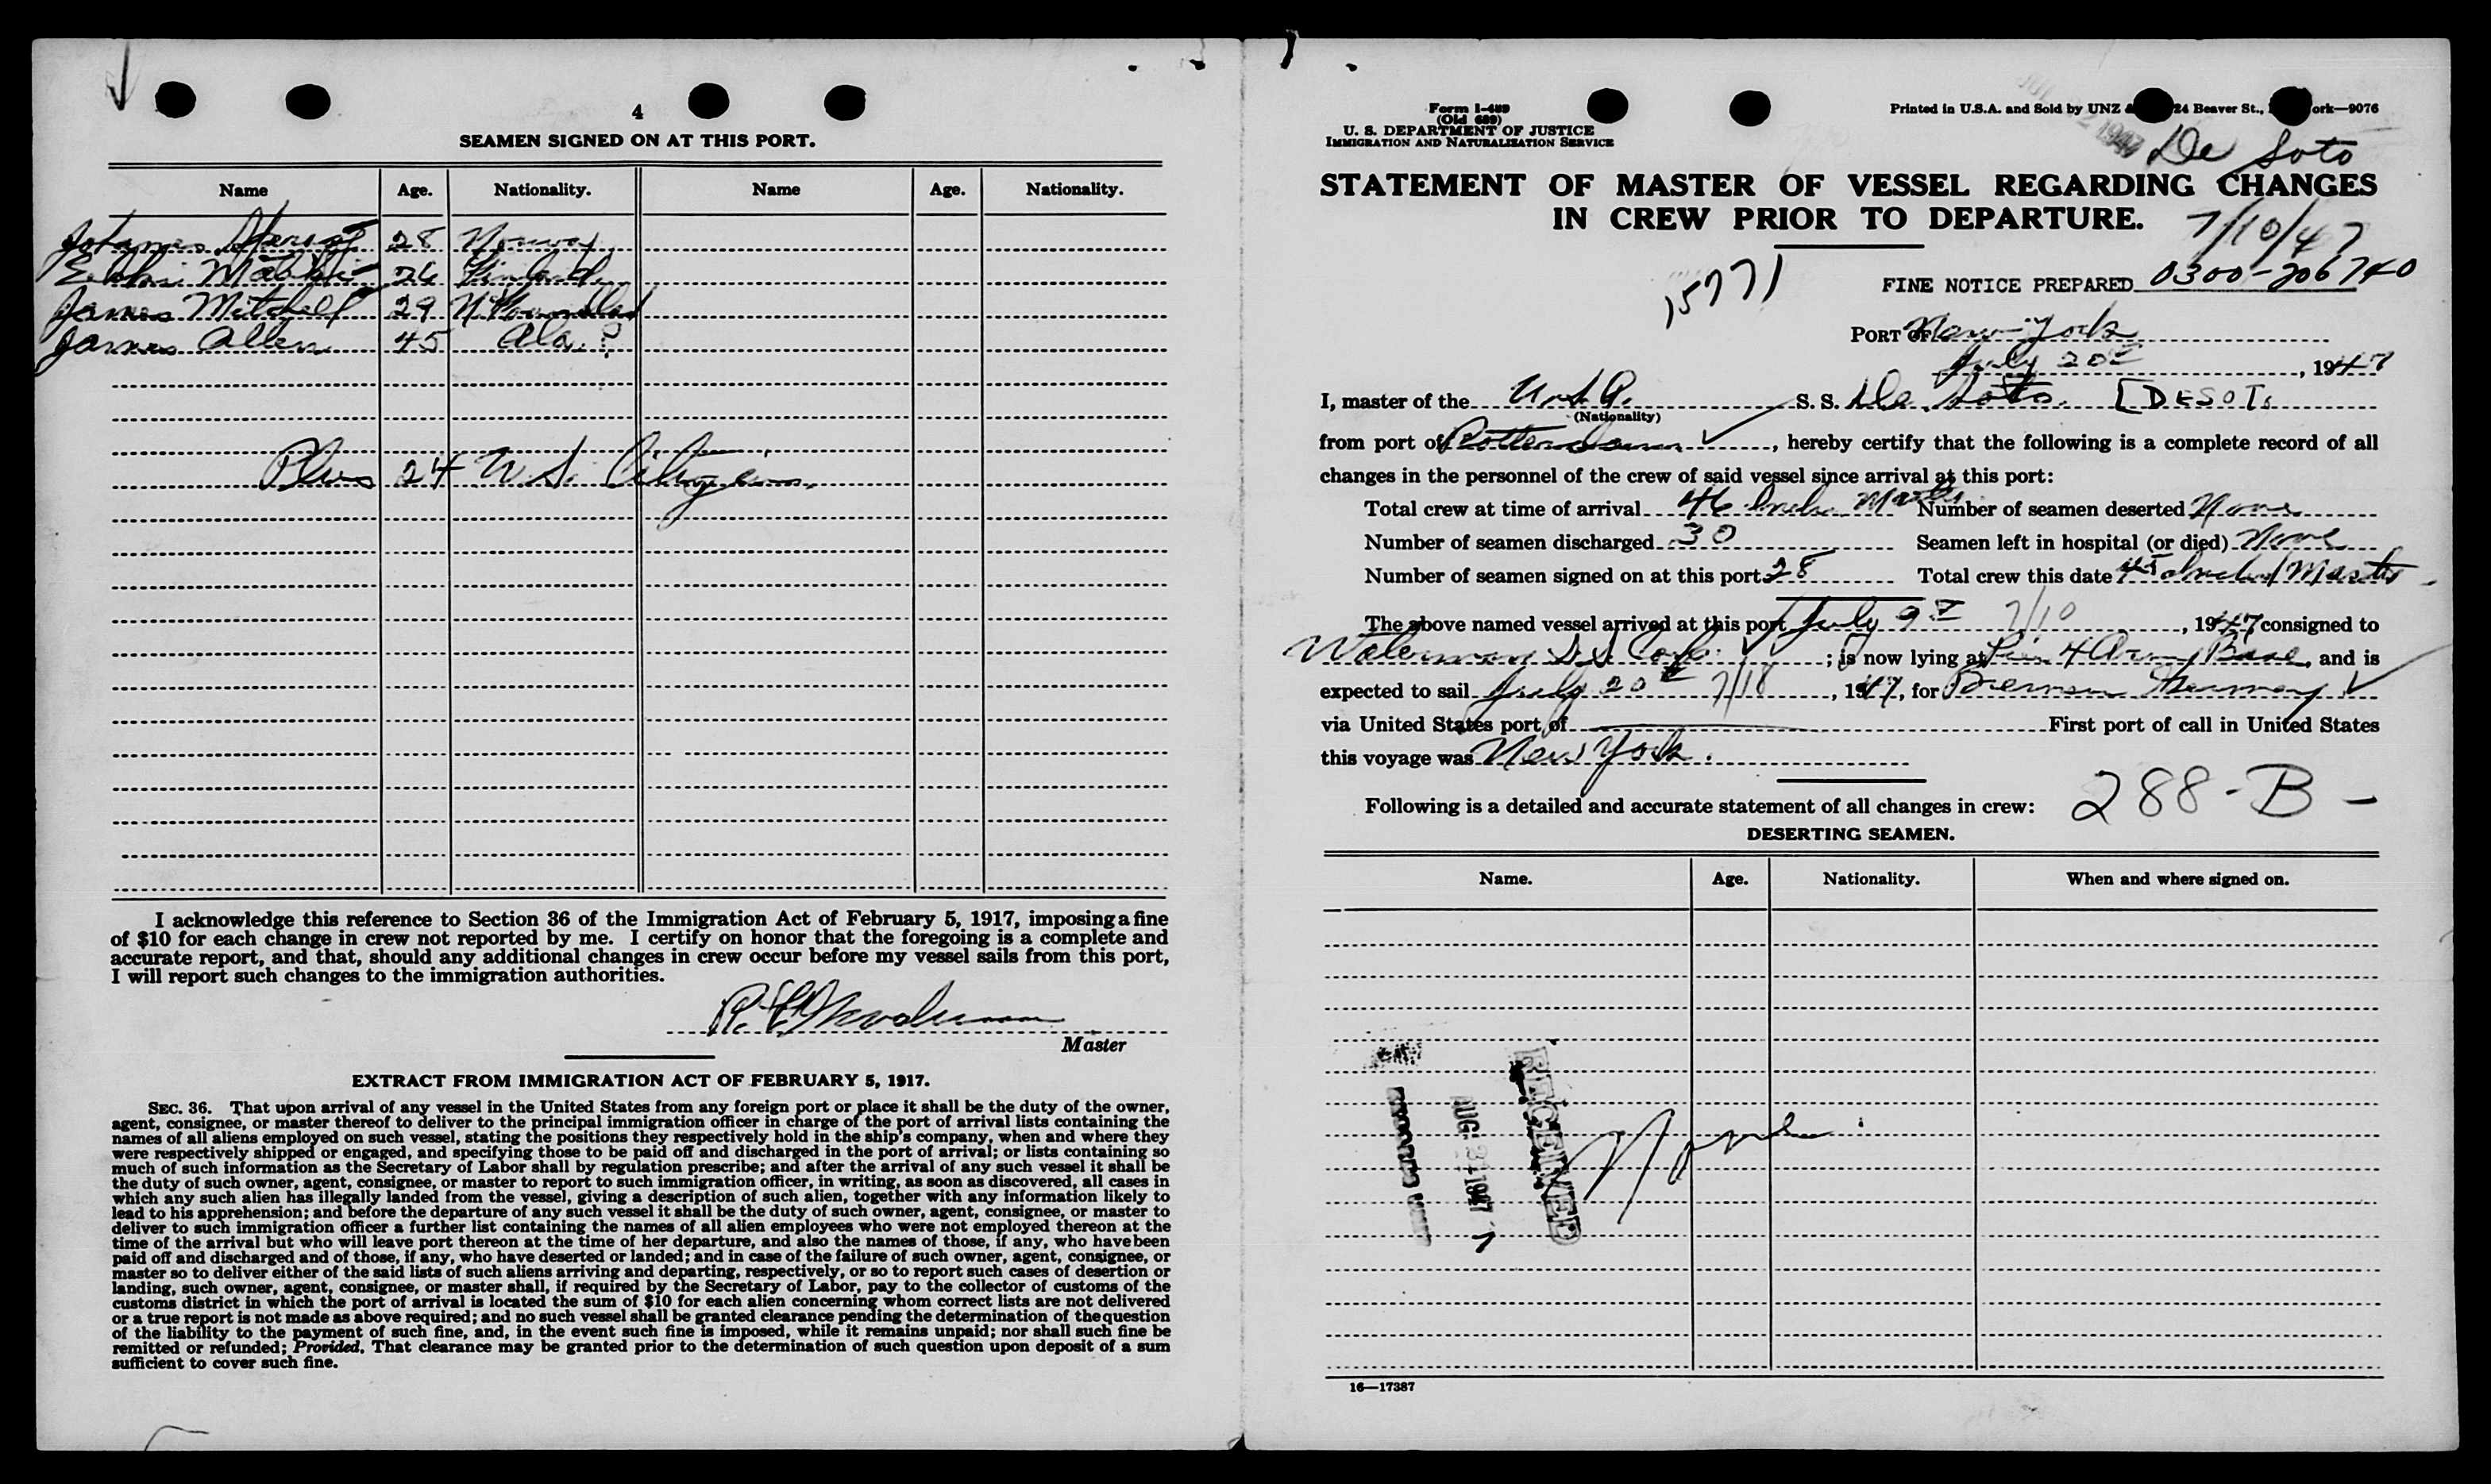 4
SEAMEN SIGNED ON AT THIS PORT.
Name Age. Nationality. Name Age. Nationality.
Johannes 28 Norway
26 Finland
James Mitchell 29
James Allen 45 Ala. ?
Plus 24 U. S. Citizens.
I acknowledge this reference to Section 36 of the Immigration Act of February 5, 1917, imposing a fine
of $10 for each change in crew not reported by me. I certify on honor that the foregoing is a complete and
accurate report, and that, should any additional changes in crew occur before my vessel sails from this port,
I will report such changes to the immigration authorities.
Master
EXTRACT FROM IMMIGRATION ACT OF FEBRUARY 5, 1917.
SEC. 36. That upon arrival of any vessel in the United States from any foreign port or place it shall be the duty of the owner,
agent, consignee, or master thereof to deliver to the principal immigration officer in charge of the port of arrival lists containing the
names of all aliens employed on such vessel, stating the positions they respectively hold in the ship's company, when and where they
were respectively shipped or engaged, and specifying those to be paid off and discharged in the port of arrival; or lists containing so
much of such information as the Secretary of Labor shall by regulation prescribe; and after the arrival of any such vessel it shall be
the duty of such owner, agent, consignee, or master to report to such immigration officer, in writing, as soon as discovered, all cases in
which any such alien has illegally landed from the vessel, giving a description of such alien, together with any information likely to
lead to his apprehension; and before the departure of any such vessel it shall be the duty of such owner, agent, consignee, or master to
deliver to such immigration officer a further list containing the names of all alien employees who were not employed thereon at the
time of the arrival but who will leave port thereon at the time of her departure, and also the names of those, if any, who have been
paid off and discharged and of those, if any, who have deserted or landed; and in case of the failure of such owner, agent, consignee, or
master so to deliver either of the said lists of such aliens arriving and departing, respectively, or so to report such cases of desertion or
landing, such owner, agent, consignee, or master shall, if required by the Secretary of Labor, pay to the collector of customs of the
customs district in which the port of arrival is located the sum of $10 for each alien concerning whom correct lists are not delivered
or a true report is not made as above required; and no such vessel shall be granted clearance pending the determination of the question
of the liability to the payment of such fine, and, in the event such fine is imposed, while it remains unpaid; nor shall such fine be
remitted or refunded; Provided, That clearance may be granted prior to the determination of such question upon deposit of a sum
sufficient to cover such fine.
Form I-489
(Old 689)
U. S. DEPARTMENT OF JUSTICE
IMMIGRATION AND NATURALIZATION SERVICE
Printed in U.S.A. and Sold by UNZ & 24 Beaver St., ork—9076
2 1947
De Soto
STATEMENT OF MASTER OF VESSEL REGARDING CHANGES
IN CREW PRIOR TO DEPARTURE.
7/10/47
15771
FINE NOTICE PREPARED 0300-206740
PORT OF New York
July 20th, 1947
I, master of the U.S.A. S. S. De Soto. [DESOTO
(Nationality)
from port of Rotterdam, hereby certify that the following is a complete record of all
changes in the personnel of the crew of said vessel since arrival at this port:
Total crew at time of arrival 46 Number of seamen deserted None
Number of seamen discharged 30 Seamen left in hospital (or died) None
Number of seamen signed on at this port 28 Total crew this date Master
The above named vessel arrived at this port July 9th 7/10, 1947, consigned to
Waterman S. S. Corp.; is now lying at Pier 4 Army Base, and is
expected to sail July 20th 7/18, 1947, for Bremen Germany
via United States port of First port of call in United States
this voyage was New York.
288-B-
Following is a detailed and accurate statement of all changes in crew:
DESERTING SEAMEN.
Name. Age. Nationality. When and where signed on.
None
RECEIVED
AUG 21 1947
16—17387